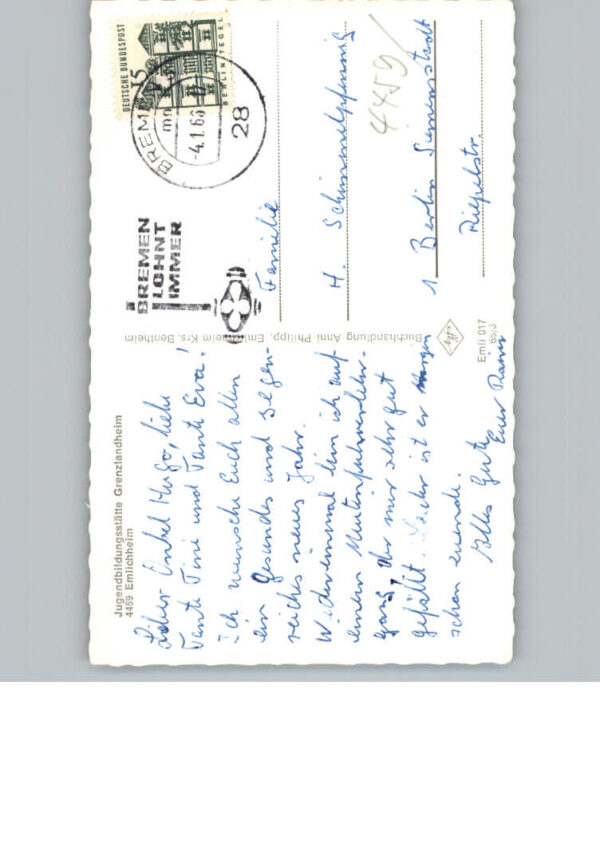 Jugendbildungsstätte Grenzlandheim
4459 Emlichheim
Lieber Onkel Hugo, liebe
Tante Tini und Tante Eva!
Ich wünsche Euch allen
ein gesundes und segen-
reiches neues Jahr.
Wieder einmal bin ich auf
einem
gang, der mir sehr gut
gefällt. Leider ist er morgen
schon zuende.
Alles Gute
Euer Rainer
Buchhandlung Anni Philipp, Emlichheim Krs. Bentheim
Emli 017
DEUTSCHE BUNDESPOST
15
BERLIN-TEGEL
BREMEN
-4.1.66
28
BREMEN
LOHNT
IMMER
Familie
H. Schimmelpfennig
1 Berlin Siemensstadt
4459